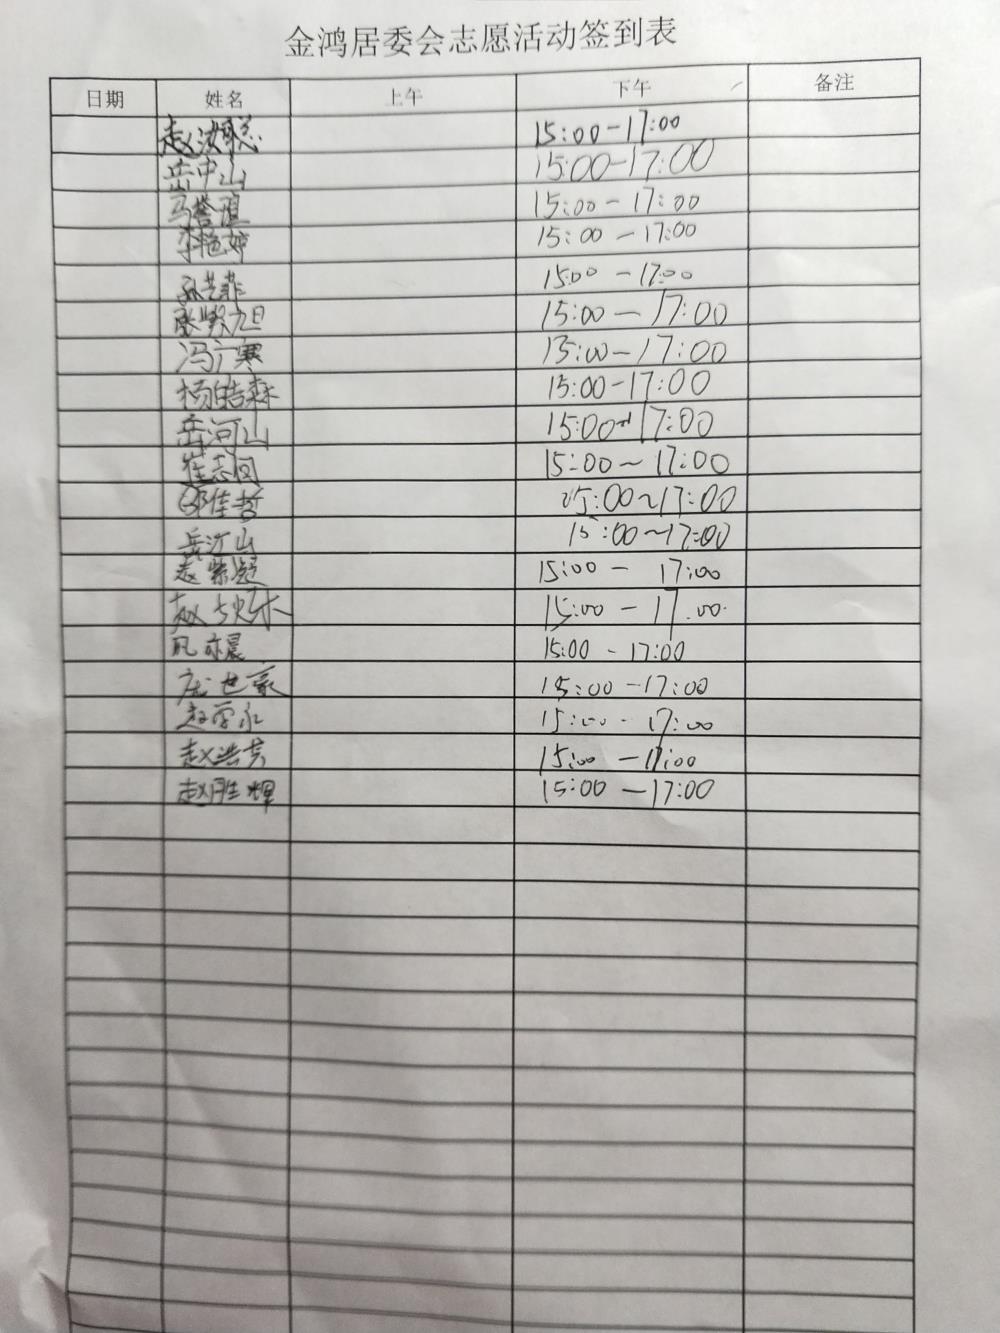 金鸿居委会志愿活动签到表
日期 姓名 上午 下午 备注
赵汝聪 15:00-17:00
岳中山 15:00-17:00
马誉 15:00-17:00
李艳婷 15:00-17:00
孙艺菲 15:00-17:00
张毅旭 15:00-17:00
冯广寒 15:00-17:00
杨皓森 15:00-17:00
岳河山 15:00~17:00
崔志国 15:00~17:00
邵佳哲 15:00~17:00
岳江山 15:00~17:00
赵紫凝 15:00-17:00
赵 15:00-17:00
凡亦晨 15:00-17:00
庞世豪 15:00-17:00
赵学永 15:00-17:00
赵浩共 15:00-17:00
赵胜辉 15:00-17:00